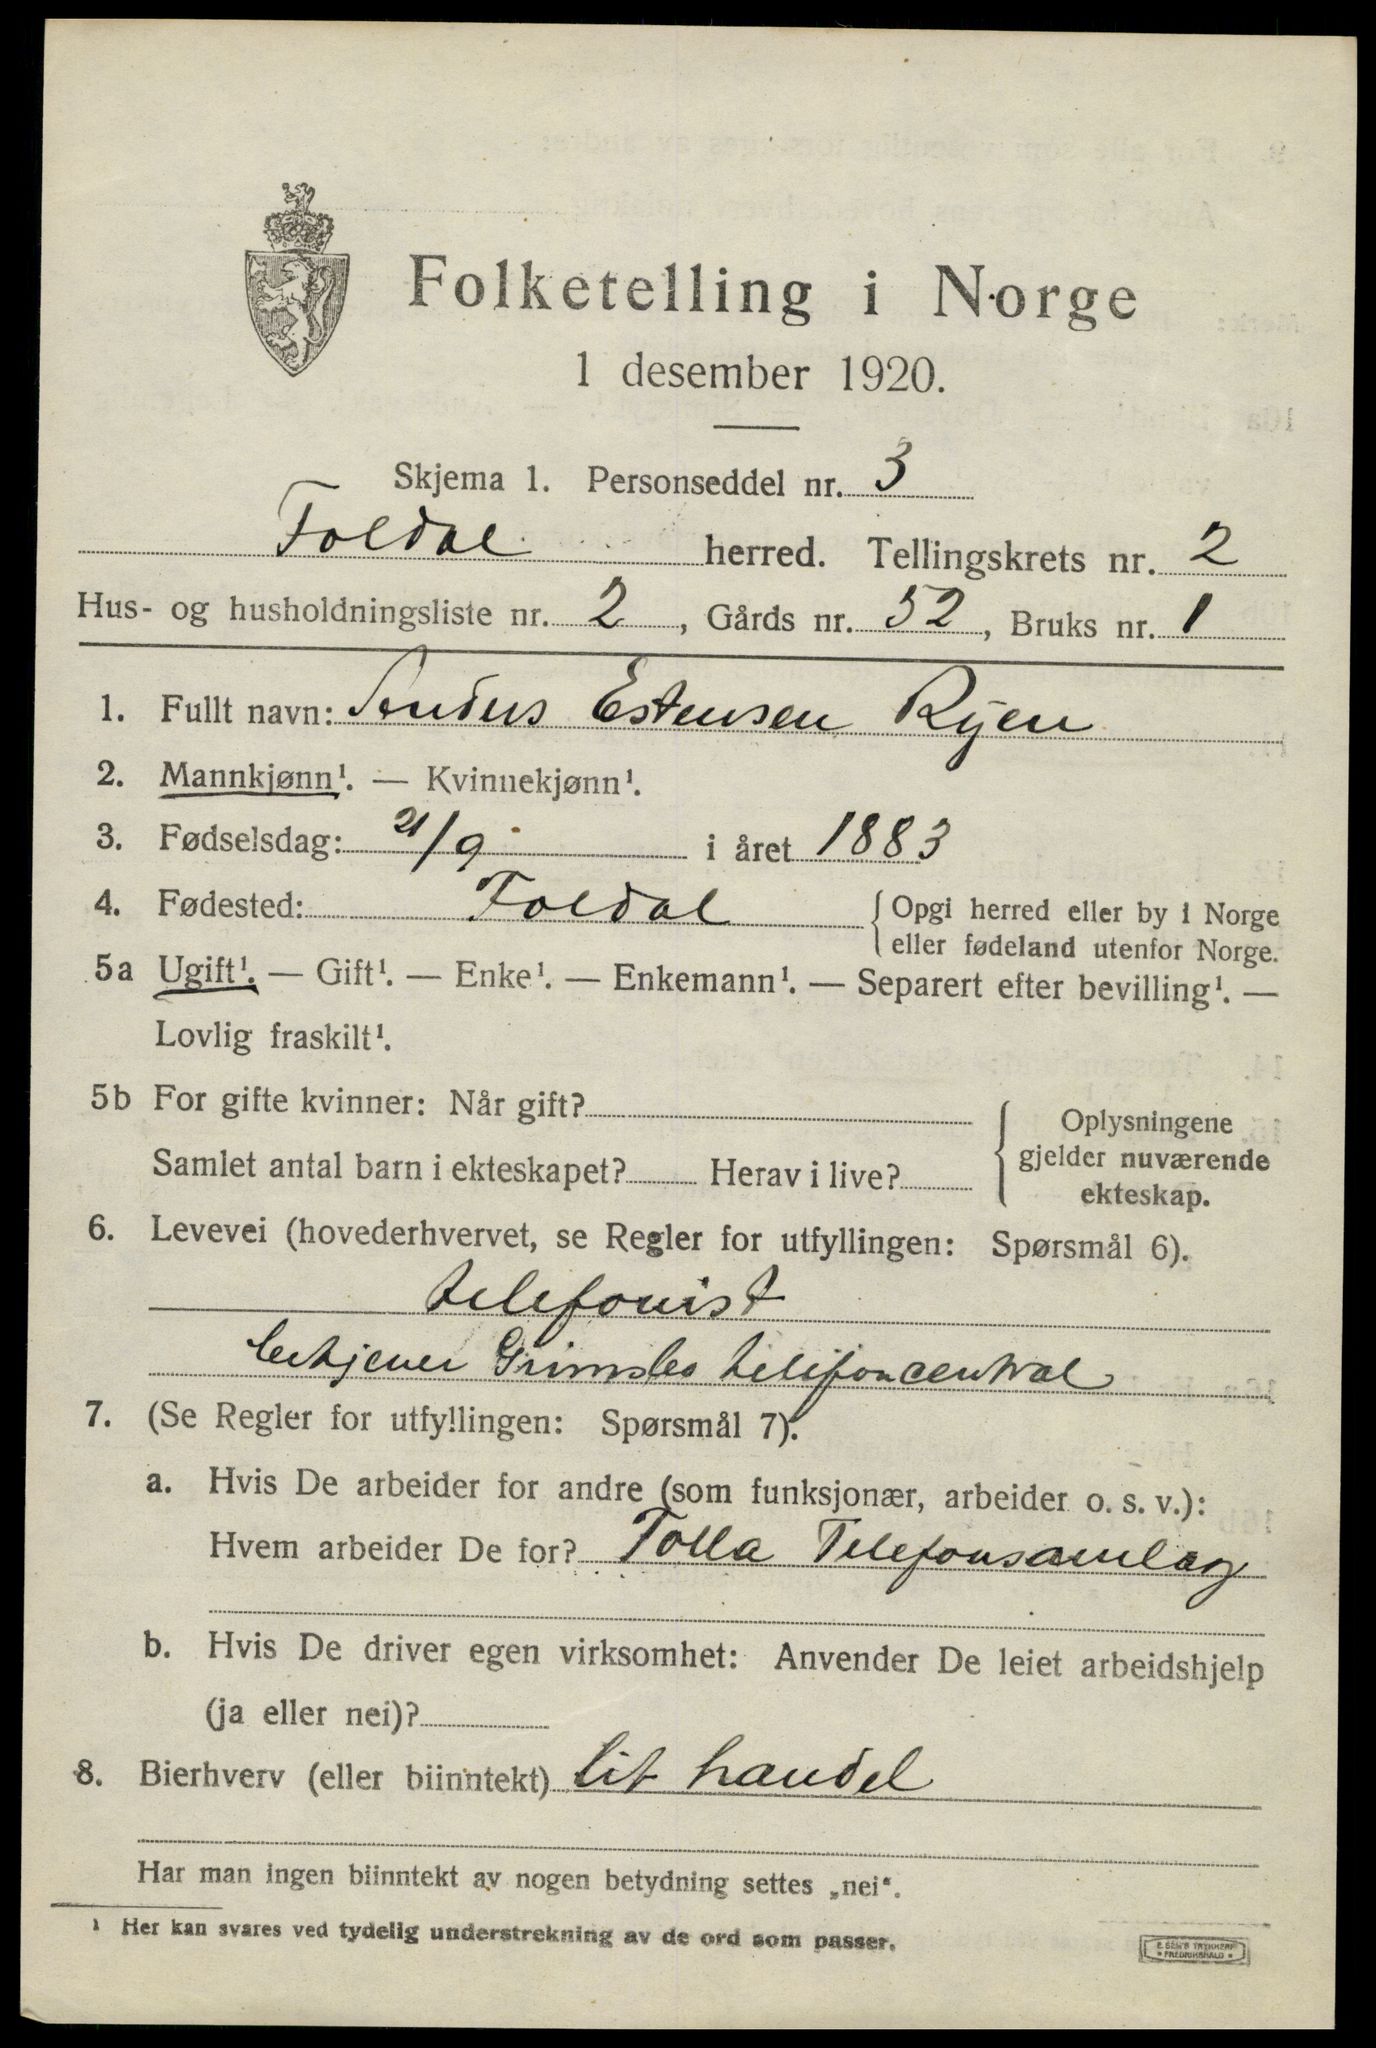 Folketelling i Norge
1 desember 1920.
Skjema 1. Personseddel nr. 3
Foldal herred. Tellingskrets nr. 2
Hus- og husholdningsliste nr. 2, Gårds nr. 52, Bruks nr. 1
1. Fullt navn: Anders Estensen Ryen
2. Mannkjønn¹. — Kvinnekjønn¹.
3. Fødselsdag: 21/9 i året 1883
4. Fødested: Foldal { Opgi herred eller by i Norge
eller fødeland utenfor Norge.
5a Ugift¹. — Gift¹. — Enke¹. — Enkemann¹. — Separert efter bevilling¹. —
Lovlig fraskilt¹.
5b For gifte kvinner: Når gift?
Samlet antal barn i ekteskapet? Herav i live?
{ Oplysningene
gjelder nuværende
ekteskap.
6. Levevei (hovederhvervet, se Regler for utfyllingen: Spørsmål 6).
telefonist
betjener Grimsbo telefoncentral
7. (Se Regler for utfyllingen: Spørsmål 7).
a. Hvis De arbeider for andre (som funksjonær, arbeider o. s. v.):
Hvem arbeider De for? Folla Telefonsamlag
b. Hvis De driver egen virksomhet: Anvender De leiet arbeidshjelp
(ja eller nei)?
8. Bierhverv (eller biinntekt) lit handel
Har man ingen biinntekt av nogen betydning settes „nei“.
¹ Her kan svares ved tydelig understrekning av de ord som passer.